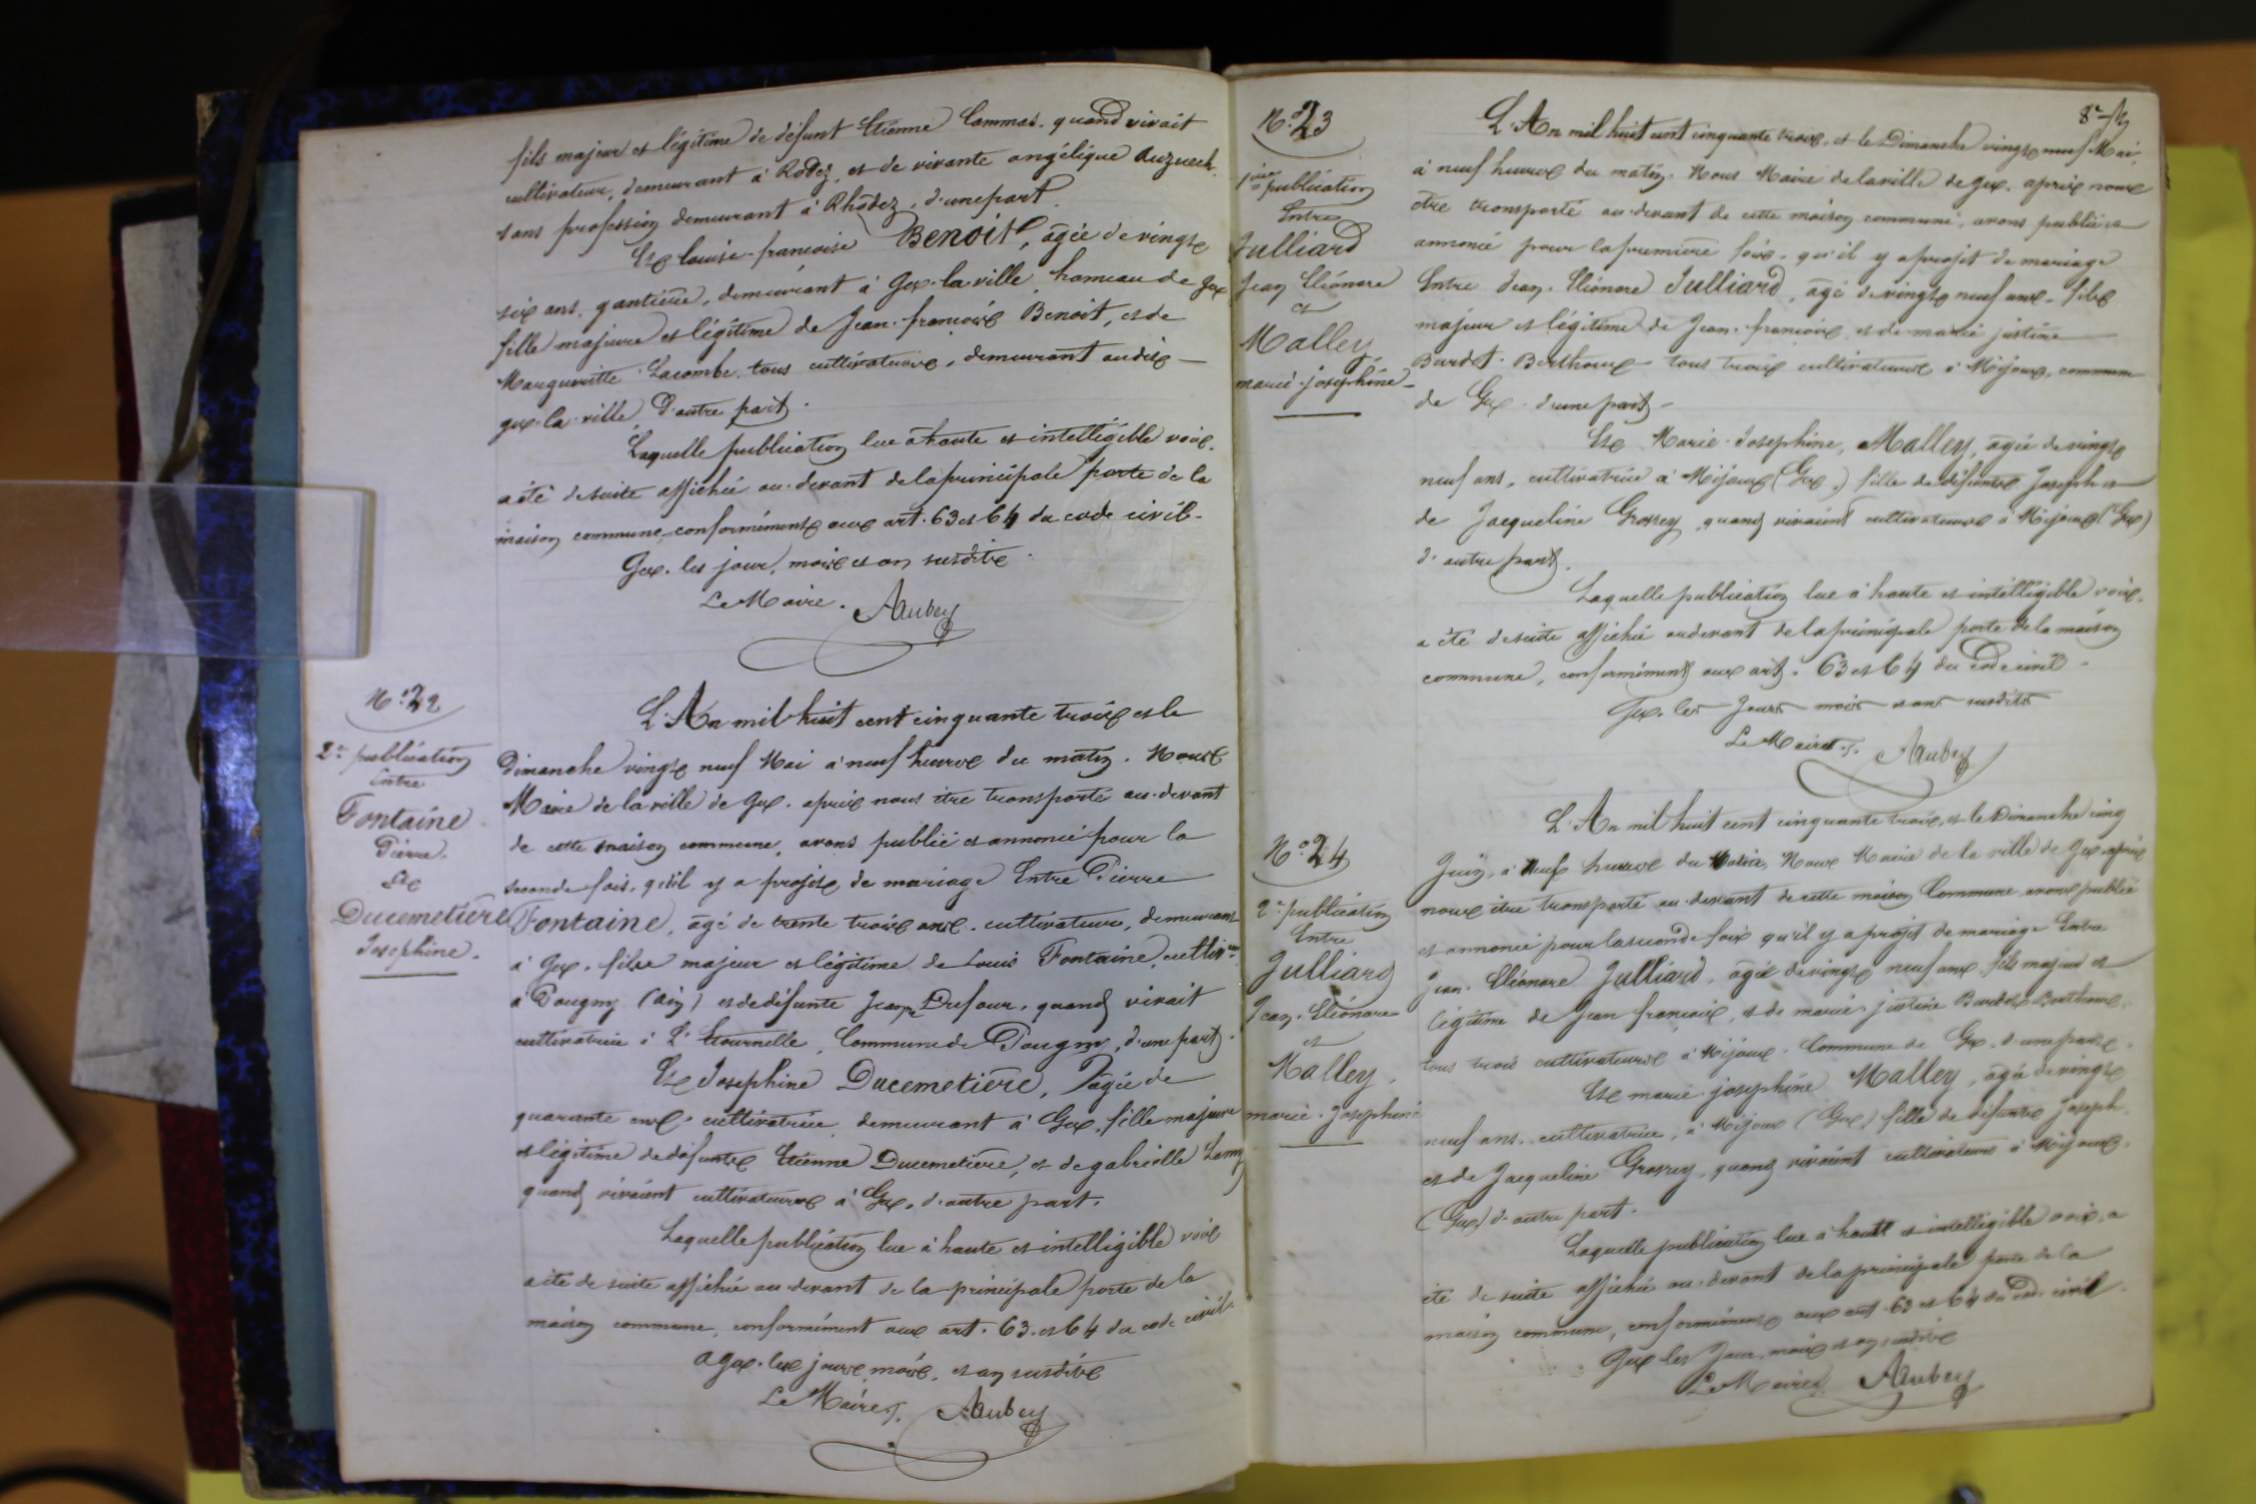 fils majeur et légitime de défunt Etienne Cammas. quand vivait
cultivateur, demeurant à Rodez, et de vivante angélique Auzuech
sans profession demeurant à Rhodez, d'une part.
Et louise-francoise Benoit, âgée de vingt
six ans, gantière, demeurant à Gex-la-ville, hameau de Gex
fille majeure et légitime de Jean-francois Benoit, et de
Marguerite Lacombe, tous cultivateurs, demeurant audit
gex-la-ville, d'autre part.
Laquelle publication lue à haute et intelligible voix.
a été de suite affichée au-devant de la principale porte de la
maison commune, conformément aux art. 63 et 64 du code civil.
Gex. les jour, mois et an susdits.
Le Maire. Aubry
N.º 22
2e publication
Entre
Fontaine
Pierre.
Et
Ducemetière
Josephine.
L'An mil huit cent cinquante trois et le
Dimanche vingt neuf Mai à neuf heures du matin. Nous
Maire de la ville de Gex. après nous être transporté au-devant
de cette maison commune, avons publié et annoncé pour la
seconde fois, qu'il y a projet de mariage Entre Pierre
Fontaine, âgé de trente trois ans. cultivateur, demeurant
à Gex. fils majeur et légitime de Louis Fontaine, cultiv
à Pougny (Ain) et de défunte Jeanne Dufour, quand vivait
cultivatrice à L'Etournelle, Commune de Pougny, d'une part.
Et Josephine Ducemetière, âgée de
quarante ans. cultivatrice, demeurant à Gex, fille majeure
et légitime de défunts Etienne Ducemetière, et de gabrielle Lamy
quand vivaient cultivateurs à Gex, d'autre part.
Laquelle publication lue à haute et intelligible voix
a été de suite affichée au-devant de la principale porte de la
maison commune, conformément aux art. 63 et 64 du code civil.
a gex. les jours, mois, et an susdits
Le Maire. Aubry
N.º 23
publication
Entre
Julliard
Jean Eléonore
et
Malley
marie-josephine
L'An mil huit cent cinquante trois, et le Dimanche vingt neuf Mai,
à neuf heures du matin. Nous Maire de la ville de gex. après nous
être transporté au-devant de cette maison commune, avons publié et
annoncé pour la première fois, qu'il y a projet de mariage
Entre Jean-Eléonore Julliard, âgé de vingt neuf ans, fils
majeur et légitime de Jean-francois, et de marie justine
Burdet-Berthoux tous trois cultivateurs à Mijoux, commune
de Gex d'une part.
Et Marie-Josephine, Malley, âgée de vingt
neuf ans, cultivatrice à Mijoux (Gex,) fille de défunts Joseph et
de Jacqueline Grossey, quand vivaient cultivateurs à Mijoux (Gex)
d'autre part.
Laquelle publication lue à haute et intelligible voix.
a été de suite affichée au devant de la principale porte de la maison
commune, conformément aux art. 63 et 64 du code civil.
Gex. les Jours mois et an susdits
Le Maire. Aubry
N.º 24
2e publication
Entre
Julliard
Jean-Eléonore
et
Malley.
marie-Josephine
L'An mil huit cent cinquante trois, et le Dimanche cinq
Juin, à neuf heures du Matin, Nous Maire de la ville de Gex après
nous être transporté au-devant de cette maison Commune avons publié
et annoncé pour la seconde fois qu'il y a projet de mariage Entre
Jean-Eléonore Julliard, âgé de vingt neuf ans, fils majeur et
légitime de Jean francois, et de marie-justine Burdet-Berthoux,
tous trois cultivateurs à Mijoux. Commune de Gex, d'une part.
Et marie josephine Malley, âgée de vingt
neuf ans, cultivatrice, à Mijoux (Gex) fille de défunts Joseph
et de Jacqueline Grossey, quand vivaient cultivateurs à Mijoux.
(Gex) d'autre part.
Laquelle publication lue à haute et intelligible voix, a
été de suite affichée au-devant de la principale porte de la
maison commune, conformément aux art. 63 et 64 du code civil.
Gex les Jour, mois et an susdits
Le Maire Aubry